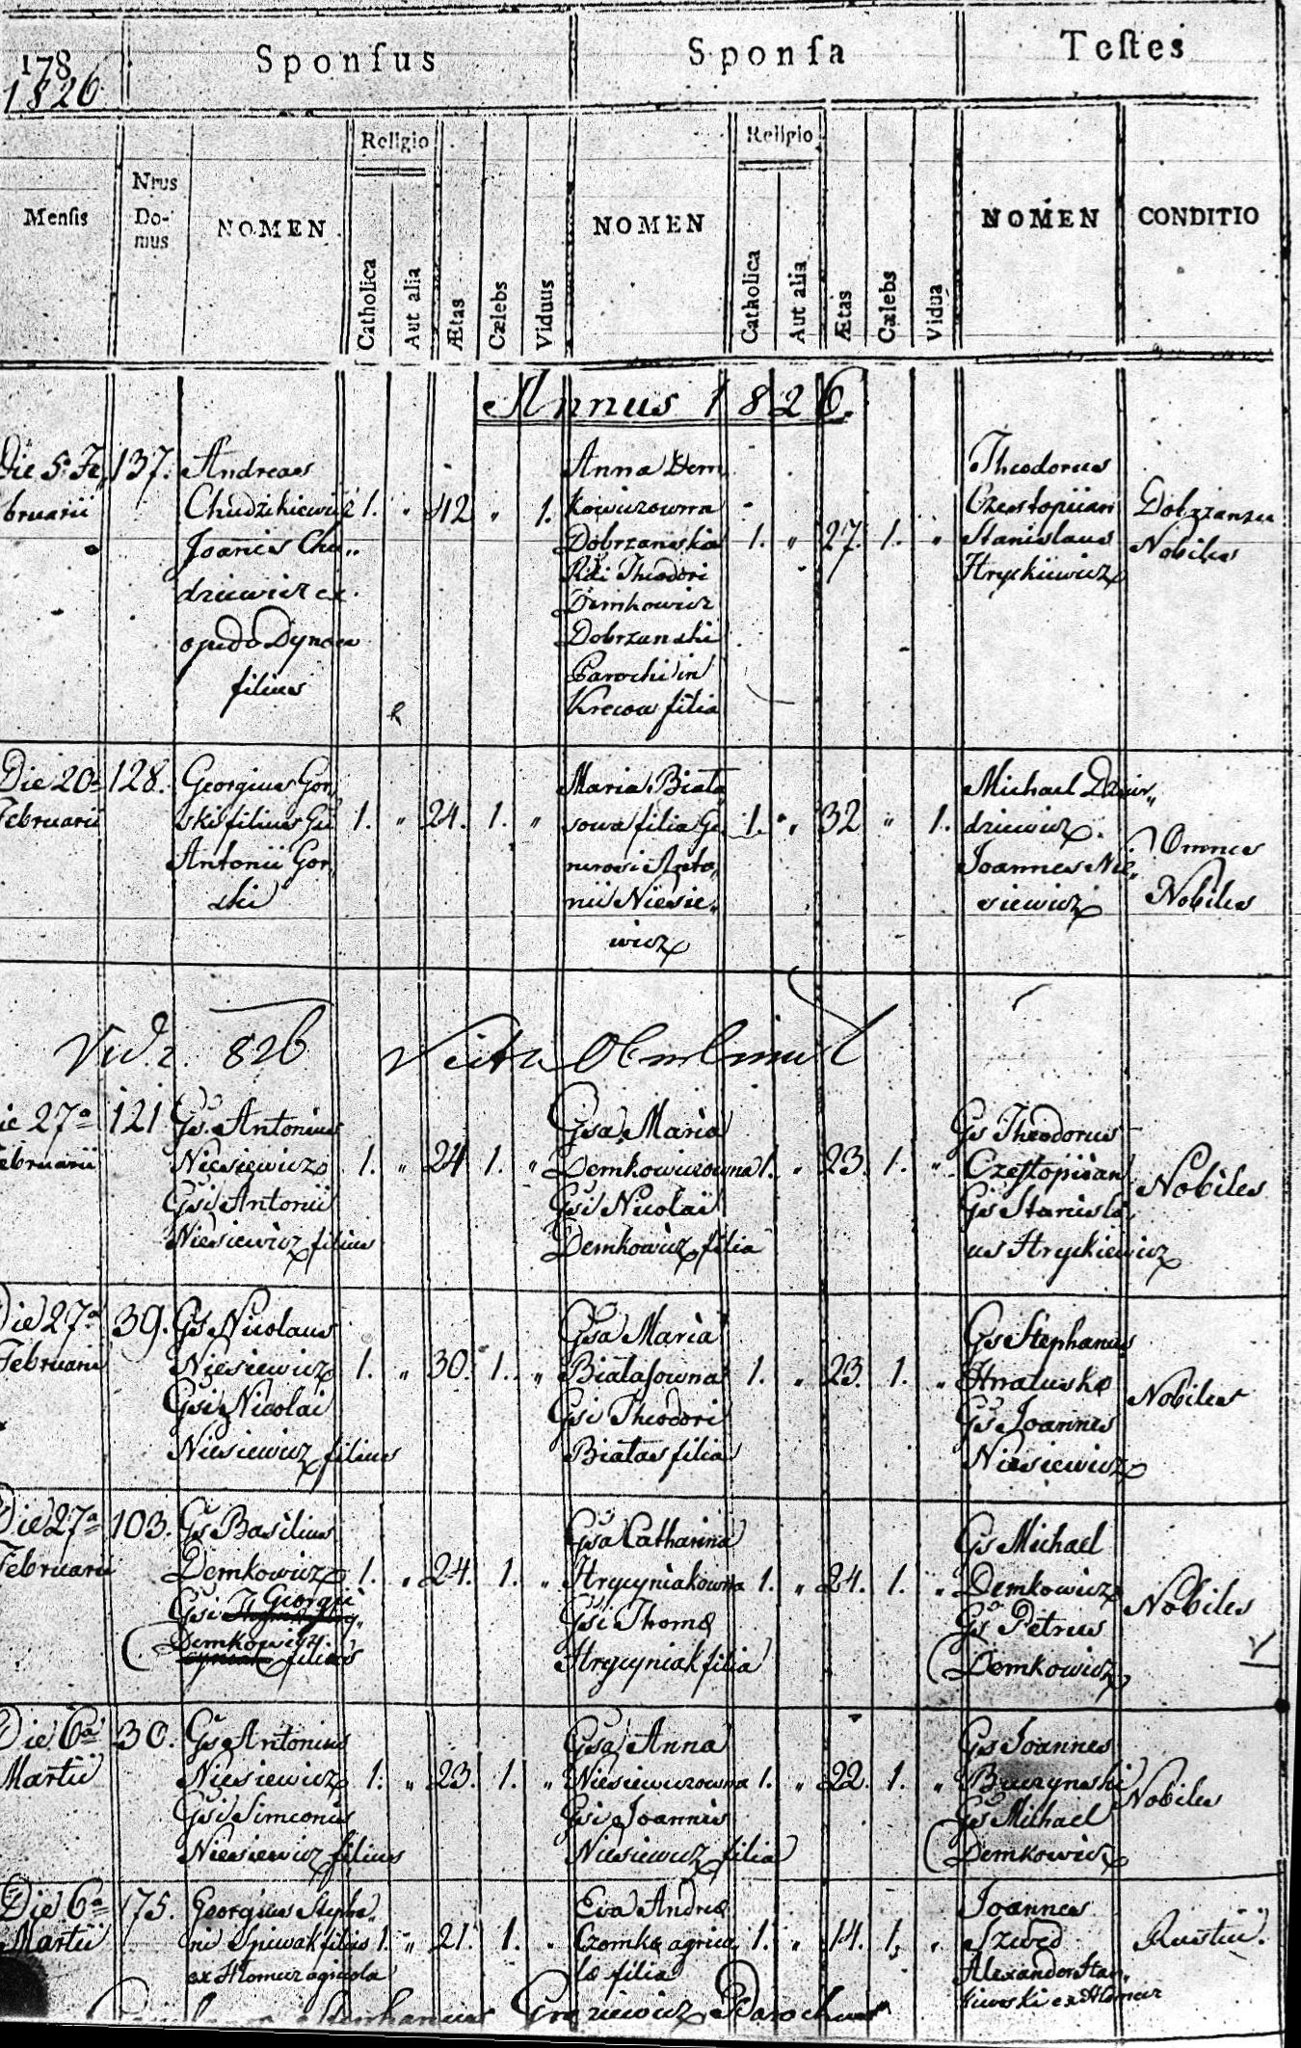 178
1826
Sponſus
Sponſa
Teſtes
Menſis
Nrus
Do-
mus
NOMEN
Religio
Catholica
Aut alia
Ætas
Cælebs
Viduus
NOMEN
Religio
Catholica
Aut alia
Ætas
Cælebs
Vidua
NOMEN
CONDITIO
Annus 1826.
Die 5. Fe„
bruarii
137.
Andreas
Joanis Chu„
dziewicz ex
opido Dynow
filius
1. „ 42 „ 1.
Anna Dem
kowiczowna
Dobrzanska
Rdi Theodori
Demkowicz
Dobrzanski
Parochi in
Krecow filia
1. „ 27. 1. „
Theodorus
Stanislaus
Hryckiewicz
Nobiles
Die 20a
Februarii
128.
Georgius Gor„
ski filius Gsi
Antonii Gor„
ski
1. „ 24. 1. „
Maria Biała
sowa filia Ge„
nerosi Anto„
nii Niesie„
wicz
1. „ 32 „ 1.
Michael
dziewicz
Joannes Nie„
siewicz
Omnes
Nobiles
826
Die 27a
Februarii
121
Gs. Antonius
Niesiewicz
Gsi Antonii
Niesiewicz filius
1. „ 24 1. „
Gsa Maria
Demkowiczowna
Gsi Nicolai
Demkowicz filia
1. „ 23. 1. „
Gs Theodorus
Częstopiian
Gs Stanisla„
us Hryckiewicz
Nobiles
Die 27a
Februarii
39.
Gs Nicolaus
Niesiewicz
Gsi Nicolai
Niesiewicz filius
1. „ 30. 1. „
Gsa Maria
Białaſowna
Gsi Theodori
Białas filia
1. „ 23. 1. „
Gs Stephanus
Gs Joannes
Niesiewicz
Nobiles
Die 27a
Februarii
103.
Gs Basilius
Demkowicz
Gsi Georgii
Demkowicz
filius
1. „ 24. 1. „
Gsa Catharina
Hrycyniakowna
Gsi Thomæ
Hrycyniak filia
1. „ 24. 1. „
Gs Michael
Demkowicz
Gs Petrus
Demkowicz
Nobiles
Die 6a
Martii
30.
Gs Antonius
Niesiewicz
Gsi Simeonis
Niesiewicz filius
1. „ 23. 1. „
Gsa Anna
Niesiewiczowna
Gsi Joannis
Niesiewicz filia
1. „ 22. 1. „
Gs Joannes
Buczynski
Gs Michael
Demkowicz
Nobiles
Die 6a
Martii
175.
Georgius Stepha„
ni Spiwak filius
ex Hlomcz agricola
1. „ 21. 1. „
Eva Andreæ
Czomko agrico
læ filia
1. „ 14. 1. „
Joannes
Szwed
Alexander
ex Hlomcz
Rustici.
Stephanus Parochus